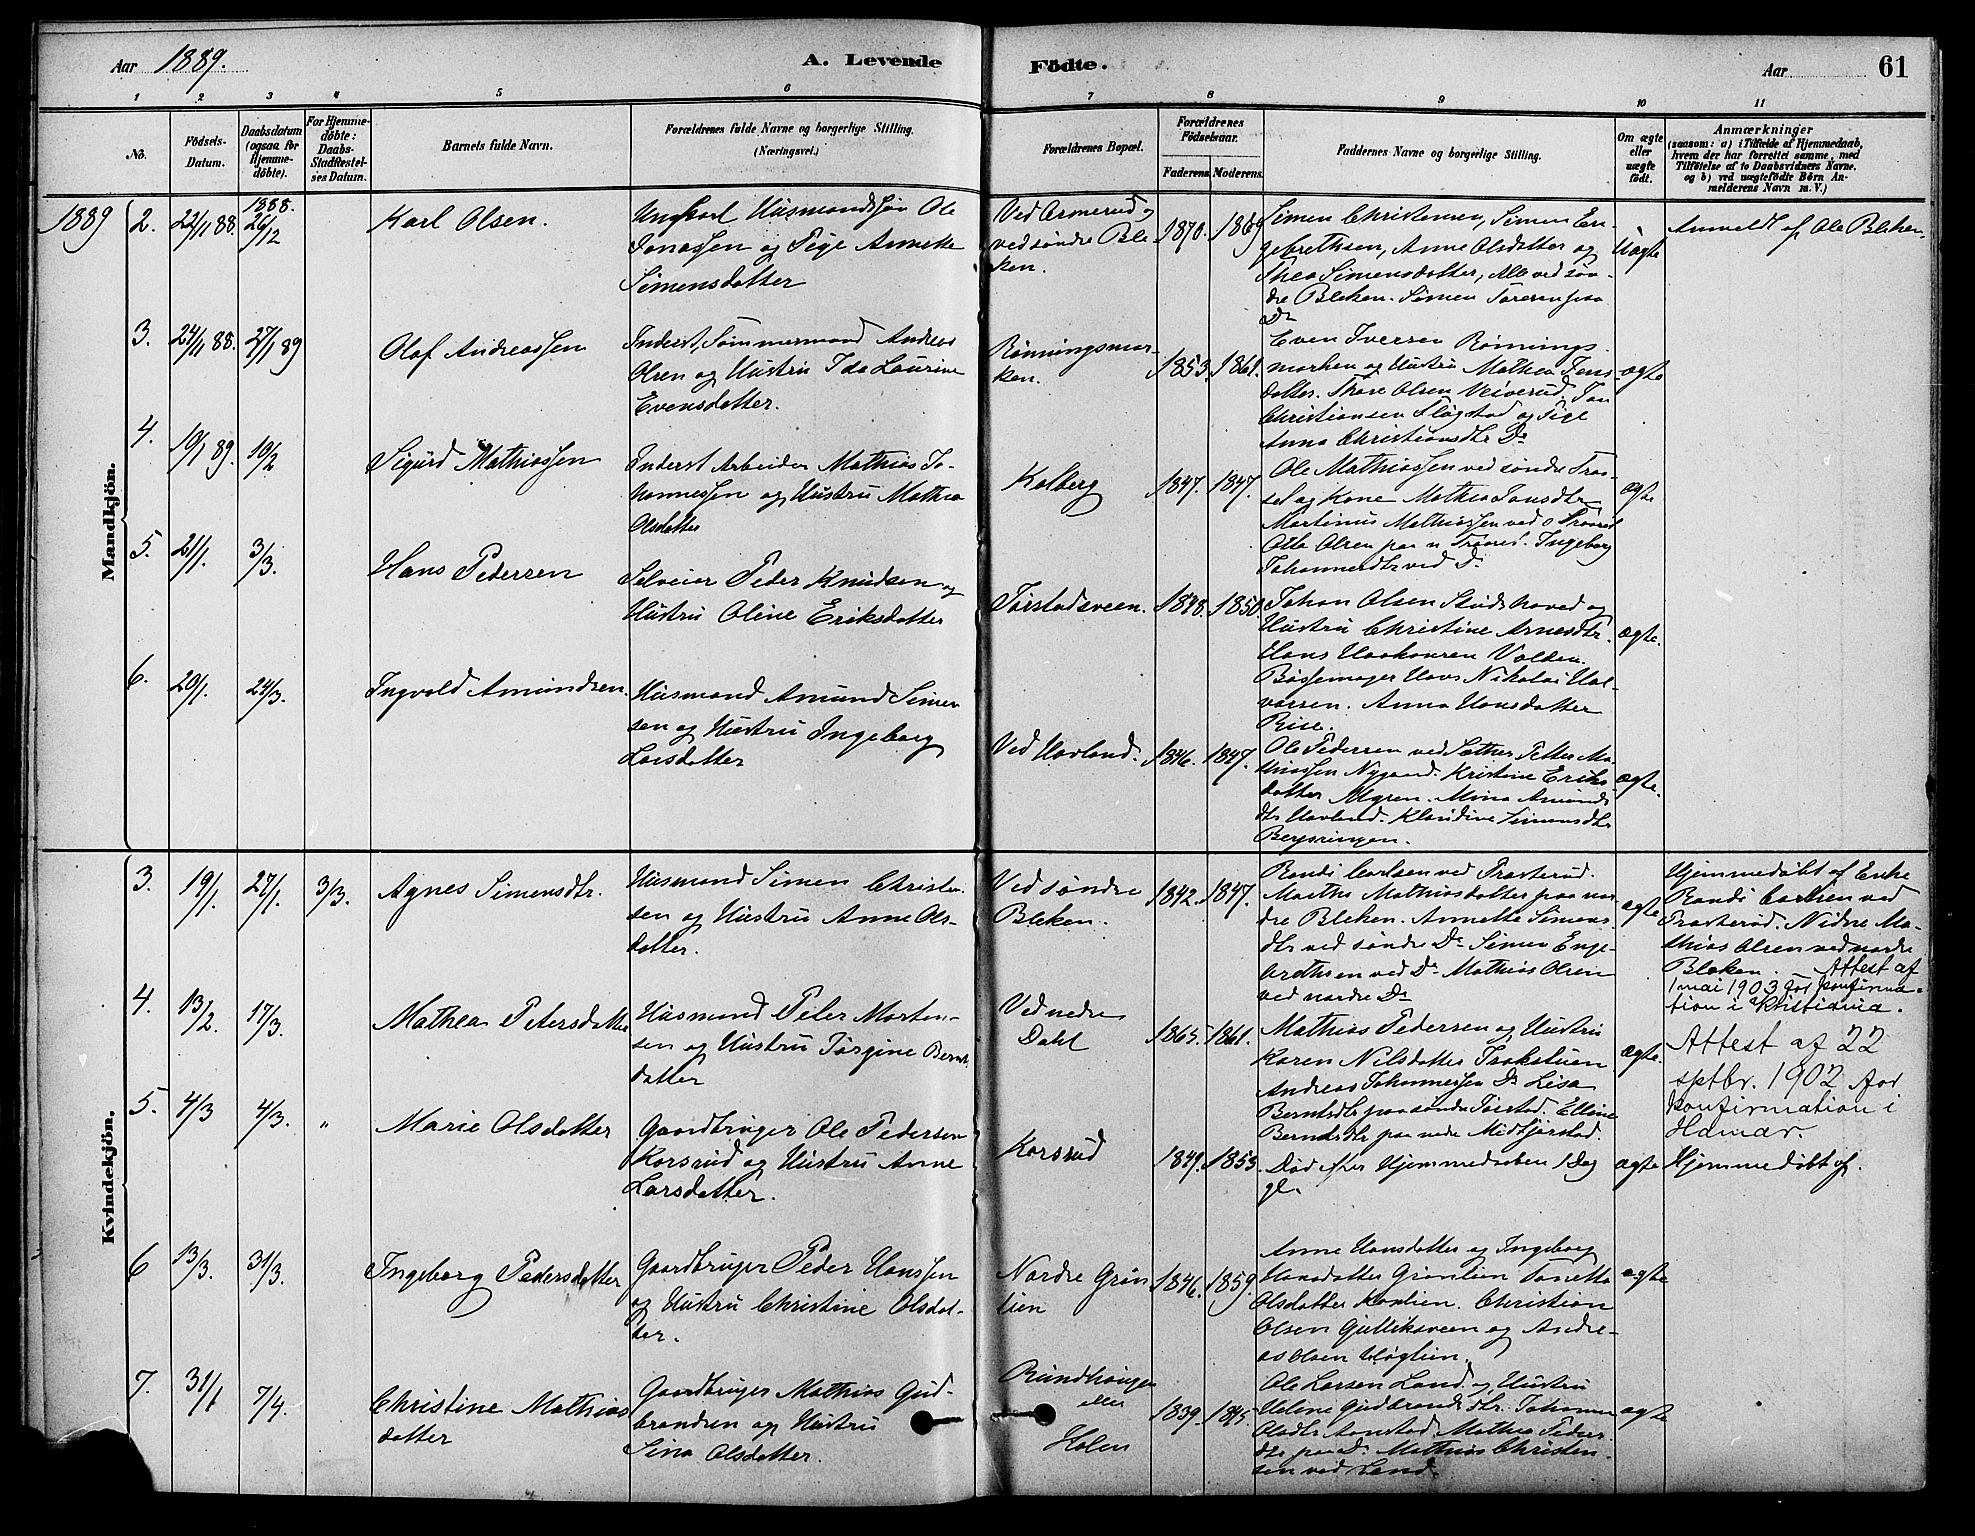 Aar 1889.
A. Levende
Födte.
Aar
61
1
2
3
4
5
6
7
8
9
10
11
No.
Födsels-
Datum.
Daabsdatum
(ogsaa for
Hjemme-
döbte).
For Hjemme-
döbte:
Daabs-
Stadfæstel-
ses Datum.
Barnets fulde Navn.
Forældrenes fulde Navne og borgerlige Stilling.
(Næringsvei.)
Forældrenes Bopæl.
Forældrenes
Födselsaar.
Faderens.
Moderens.
Faddernes Navne og borgerlige Stilling.
Om ægte
eller
uægte
födt.
Anmærkninger
(saasom: a) i Tilfælde af Hjemmedaab,
hvem der har forrettet samme, med
Tilföielse af to Daabsvidners Navne,
og b) ved uægtefödte Börn An-
melderens Navn m. V.)
Mandkjön.
1889
2.
22/11 88.
1888.
26/12
Karl Olsen.
Ungkarl Husmandssøn Ole
Jonassen og Pige Annette
Simensdatter
Ved Armerud og
ved søndre Ble-
ken.
1870.
1869
Simen Christensen, Simen En-
gebrethsen, Anne Olsdatter og
Thea Simensdatter, Alle ved søn-
dre Bleken. Simen Toresen paa
Do
Uægte
Anmeldt af Ole Bleken.
3.
24/11 88.
27/1 89
Olaf Andreassen
Inderst, Tømmermand Andreas
Olsen og Hustru Ida Laurine
Evensdatter.
Rønningsmar-
ken.
1853.
1861.
Even Iversen Rønnings-
marken og Hustru Mathea Jens-
datter. Thore Olsen Veiverud. Jan
Christiansen Fløgstad og Pige
Anna Christiansdtr Do
ægte
4.
19/1 89.
10/2
Sigurd Mathiassen
Inderst Arbeider Mathias Jo-
hannessen og Hustru Mathea
Olsdatter
Kolberg
1847.
1847.
Ole Mathiassen ved søndre Traa-
sel og Kone Mathea Jansdtr
Martinus Mathiassen ved
Otto Olsen paa n Ingeborg
Johannesdtr ved Do
ægte
5.
21/1.
3/3.
Hans Pedersen
Selveier Peder Knudsen og
Hustru Oline Eriksdatter
Tørstadsveen.
1848.
1850.
Johan Olsen Studshoved og
Hustru Christine Arnesdtr.
Hans Haakonsen Volden.
Bøssemager Hans Nikolai Hal-
vorsen. Anna Hansdatter
Rise.
ægte.
6.
20/1.
24/3.
Ingvald Amundsen.
Husmand Amund Simen-
sen og Hustru Ingeborg
Larsdatter
Ved Havland.
1846.
1847.
Ole Pedersen ved Sæther Petter Ma-
thiassen Nygaard. Kristine Eriks-
datter Myren. Mina Amunds-
dtr Havland. Klaudine Simensdtr
Bergsringen.
ægte.
Kvindekjön.
3.
19/1.
27/1.
3/3.
Agnes Simensdtr.
Husmand Simen Christen-
sen og Hustru Anne Ols-
datter.
Ved søndre
Bleken.
1842.
1847.
Randi Carlsen ved Prasterud.
Marthe Mathiasdatter paa nor-
dre Bleken. Annette Simens-
dtr ved søndre Do Simen Enge-
brethsen ved Do Mathias Olsen
ved nordre Do
ægte
Hjemmedøbt af Enke
Randi Carlsen ved
Prasterud. Vidne Ma-
thias Olsen ved nordre
Bleken. Attest af
1 mai 1903 for konfirma-
tion i Kristiania.
4.
13/2.
17/3.
Mathea Petersdatter
Husmand Peter Morten-
sen og Hustru Jørgine Bernts-
datter
Ved nedre
Dahl
1865.
1861.
Mathias Pedersen og Hustru
Karen Nilsdatter Prakstuen
Andreas Johannessen Do Lisa
Berntsdtr paa søndre Tørstad. Elline
Berntsdtr paa nedre Midtfjørstad.
ægte.
Attest af 22
sptbr. 1902 for
konfirmation i
Hamar.
5.
4/3
4/3.
"
Marie Olsdatter
Gaardbruger Ole Pedersen
Korsrud og Hustru Anne
Larsdatter.
Korsrud
1849.
1853.
Død efter Hjemmedaaben 1 Dag
gl.
ægte
Hjemmedøbt af.
6
13/3.
31/3.
Ingeborg Pedersdatter
Gaardbruger Peder Hanssen
og Hustru Christine Olsdat-
ter.
Nordre Grøn-
lien
1846.
1859.
Anne Hansdatter og Ingeborg
Hansdatter Grønlien Tonetta
Olsdatter Kankien. Christian
Olsen Gulliksveen og Andre-
as Olsen Høglien.
ægte
7.
31/1
7/4.
Christine Mathias-
datter
Gaardbruger Mathias Gud-
brandsen og Hustru
Sina Olsdatter.
Rundhaugen
eller
Holen
1839.
1845.
Ole Larsen Land og Hustru
Helene Gudbrandsdtr. Johanne
Olsdtr Aanstad. Mathea Peders-
dtr paa Do. Mathias Christen-
sen ved Land.
ægte